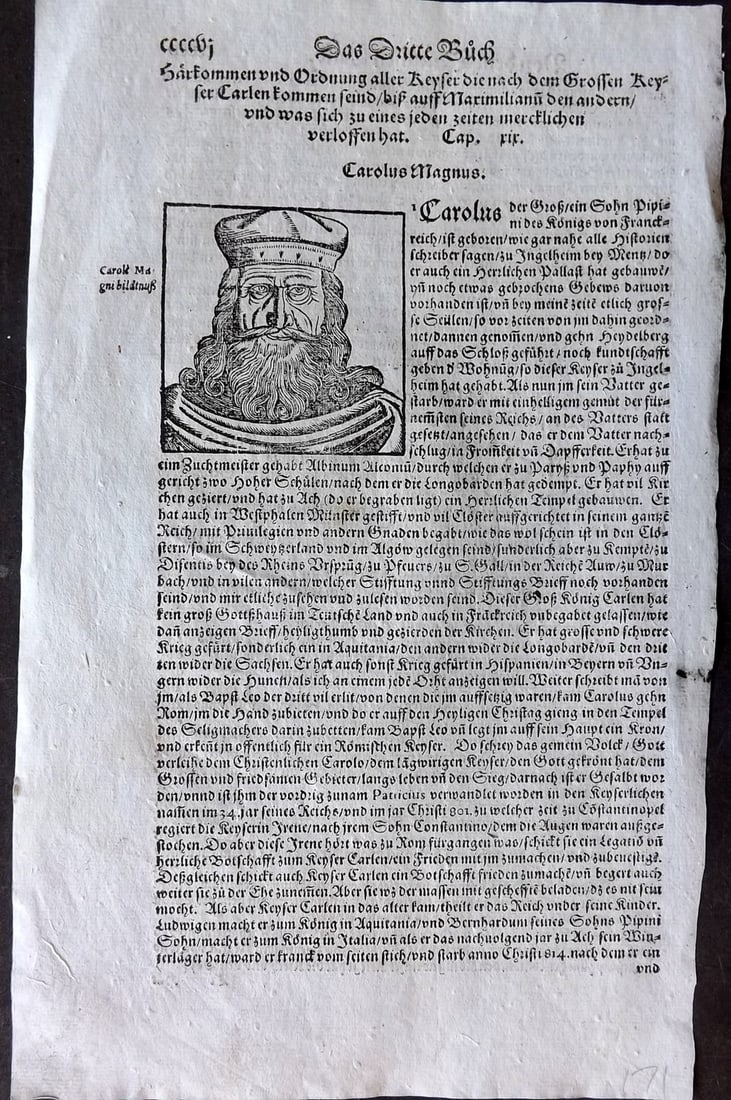 ccccvj Das Dritte Bůch
Härkommen vnd Ordnung aller Keyser die nach dem Grossen Key-
ser Carlen kommen seind/biß auff Maximilianū den andern/
vnd was sich zu eines jeden zeiten mercklichen
verloffen hat. Cap. xix.
Carolus Magnus.
Carolē Ma-
gni bildtnuß
1 Carolus der Groß/ein Sohn Pipi-
ni des Königs von Franck-
reich/ist geboren/wie gar nahe alle Historien
schreiber sagen/zu Ingelheim bey Mentz/do
er auch ein Herrlichen Pallast hat gebauwē/
vñ noch etwas gebrochens Gebews daruon
vorhanden ist/vñ bey meinē zeitē etlich gros-
se Seülen/so vor zeiten von jm dahin geord-
net/dannen genom̄en/vnd gehn Heydelberg
auff das Schloß geführt/noch kundtschafft
geben d Wohnūg/so dieser Keyser zů Ingel-
heim hat gehabt. Als nun jm sein Vatter ge-
starb/ward er mit einhelligem gemüt der für-
nem̄sten seines Reichs/an des Vatters statt
gesetzt/angesehen/das er dem Vatter nach-
schlug/in From̄keit vñ Dapfferkeit. Er hat zu
eim Zuchtmeister gehabt Albinum Alcoinū/durch welchen er zu Paryß vnd Paphy auff
gericht zwo Hoher Schůlen/nach dem er die Longobarden hat gedempt. Er hat vil Kir
chen geziert/vnd hat zu Ach (do er begraben ligt) ein Herrlichen Tempel gebauwen. Er
hat auch in Westphalen Münster gestifft/vnd vil Clöster auffgerichtet in seinem gantzē
Reich/mit Priuilegien vnd andern Gnaden begabt/wie das wol schein ist in den Clö-
stern/so im Schweytzerland vnd im Algöw gelegen seind/sunderlich aber zu Kemptē/zu
Disentis bey des Rheins Vrsprūg/zu Pfeuers/zu S. Gall/in der Reichē Auw/zu Mur
bach/vnd in vilen andern/welcher Stifftung vnnd Stifftungs Brieff noch vorhanden
seind/vnd mir etliche zusehen vnd zulesen worden seind. Dieser Groß König Carlen hat
kein groß Gottßhauß im Teutschē Land vnd auch in Frāckreich vnbegabet gelassen/wie
dañ anzeigen Brieff/heyligthumb vnd gezierden der Kirchen. Er hat grosse vnd schwere
Krieg gefürt/sonderlich ein in Aquitania/den andern wider die Longobardē/vñ den drit
ten wider die Sachsen. Er hat auch sonst Krieg gefürt in Hispanien/in Beyern vñ Vn-
gern wider die Hunen/als ich an einem jedē Orht anzeigen will. Weiter schreibt mā von
jm/als Bapst Leo der dritt vil erlit/von denen die jm auffsetzig waren/kam Carolus gehn
Rom/jm die Hand zubieten/vnd do er auff den Heyligen Christag gieng in den Tempel
des Seligmachers darin zubetten/kam Bapst Leo vñ legt jm auff sein Haupt ein Kron/
vnd erkeñt jn offentlich für ein Römischen Keyser. Do schrey das gemein Volck/Gott
verleihe dem Christenlichen Carolo/dem lāgwirigen Keyser/den Gott gekrönt hat/dem
Grossen vnd friedsamen Gebieter/langs leben vñ den Sieg/darnach ist er Gesalbt wor
den/vnnd ist jhm der vordrig zunam Patricius verwandlet worden in den Keyserlichen
nam̄en im 34. jar seines Reichs/vnd im jar Christi 801. zu welcher zeit zu Cōstantinopel
regiert die Keyserin Irene/nach jrem Sohn Constantino/dem die Augen waren außge-
stochen. Do aber diese Irene hört was zu Rom fürgangen was/schickt sie ein Legatō vñ
herrliche Botschafft zum Keyser Carlen/ein Frieden mit jm zumachen/vnd zubeuestigē.
Deßgleichen schickt auch Keyser Carlen ein Botschafft frieden zumachē/vñ begert auch
weiter sie zů der Ehe zunem̄en. Aber sie wz der massen mit gescheffte beladen/dz es nit sein
mocht. Als aber Keyser Carlen in das alter kam/theilt er das Reich vnder seine Kinder.
Ludwigen macht er zum König in Aquitania/vnd Bernhardum seines Sohns Pipini
Sohn/macht er zum König in Italia/vñ als er das nachuolgend jar zu Ach sein Win-
terläger hat/ward er kranck vom seiten stich/vnd starb anno Christi 814. nach dem er ein
vnd
171